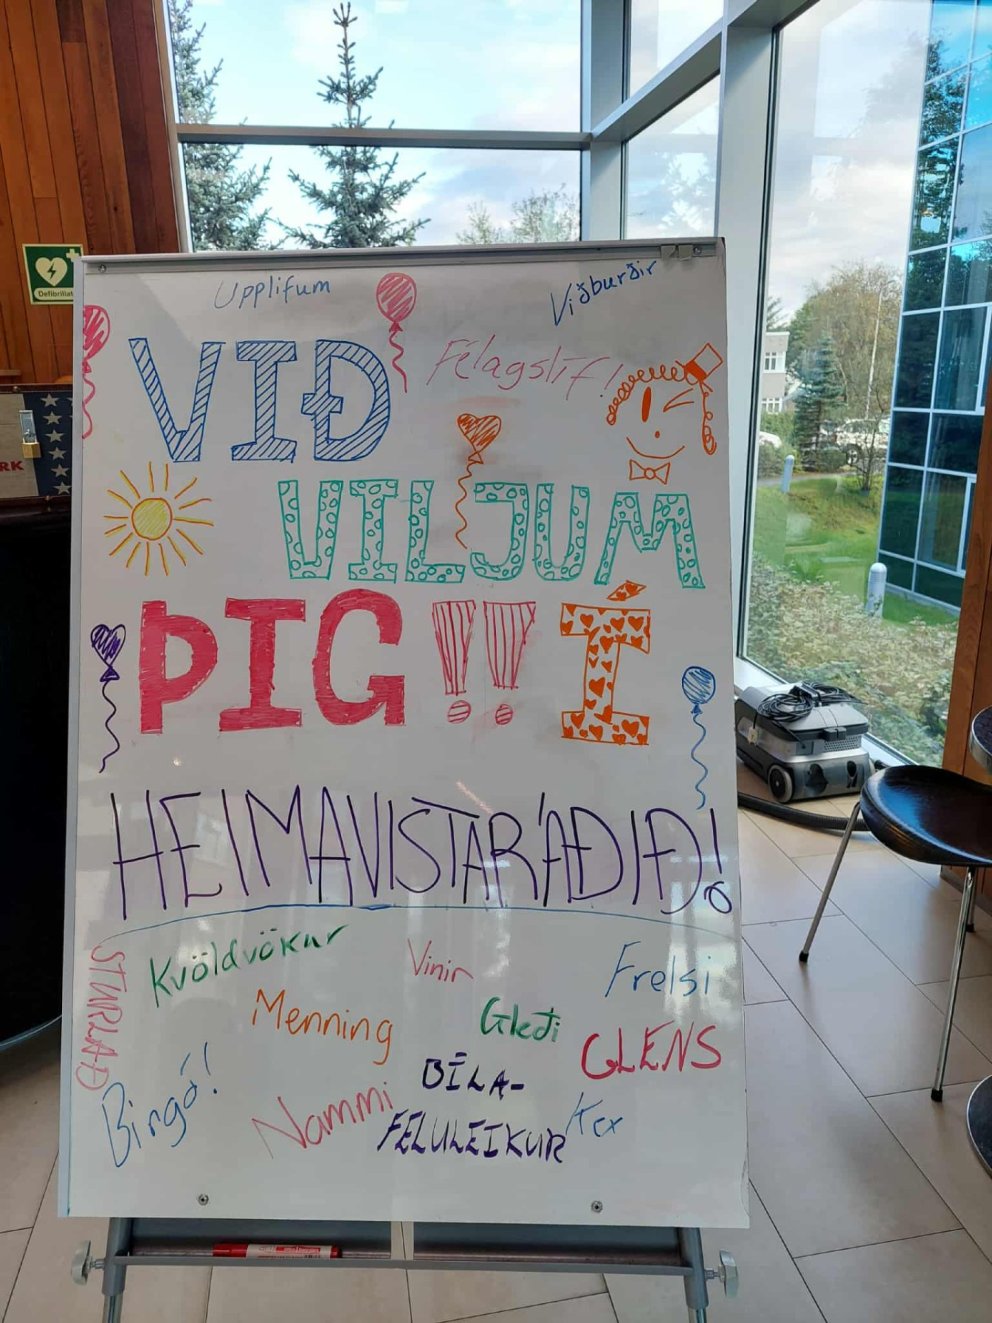 Upplifum
Viðburðir
VIÐ
Félagslíf!
VILJUM
ÞIG!!! Í
HEIMAVISTAR'AÐIÐ!
Kvöldvökur
Vinir
Frelsi
STURLAÐ
Menning
Gleði
GLENS
Bingó!
Nammi
BÍLA-
FELULEIKUR
Kex
Defibrillat
RK